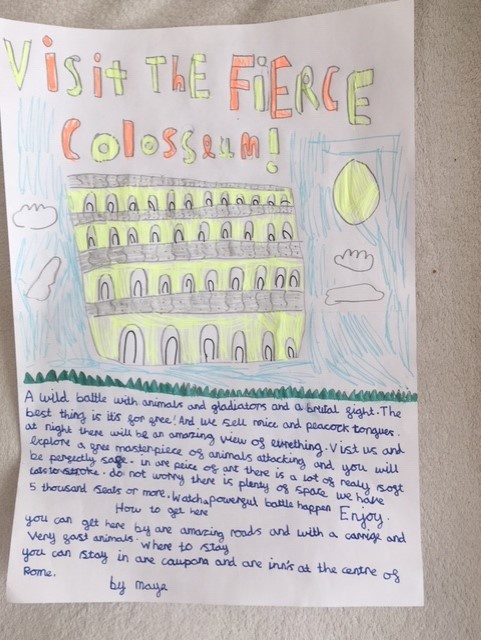 Visit The FiERCE
Colosseum!
A wild battle with animals and gladiators and a brutal fight. The
best thing is it's for free! And we sell mice and peacock tongues.
at night there will be an amazing view of everything. Visit us and
explore a free masterpiece of animals attacking and you will
be perfectly safe. in are peice of art there is a lot of realy soft
to stroke. do not worry there is plenty of space we have
5 thousand seats or more. Watch a powerful battle happen Enjoy.
How to get here
you can get here by are amazing roads and with a carrige and
Very fast animals. Where to stay
you can stay in are caupona and are inn's at the centre of
Rome.
by Maya